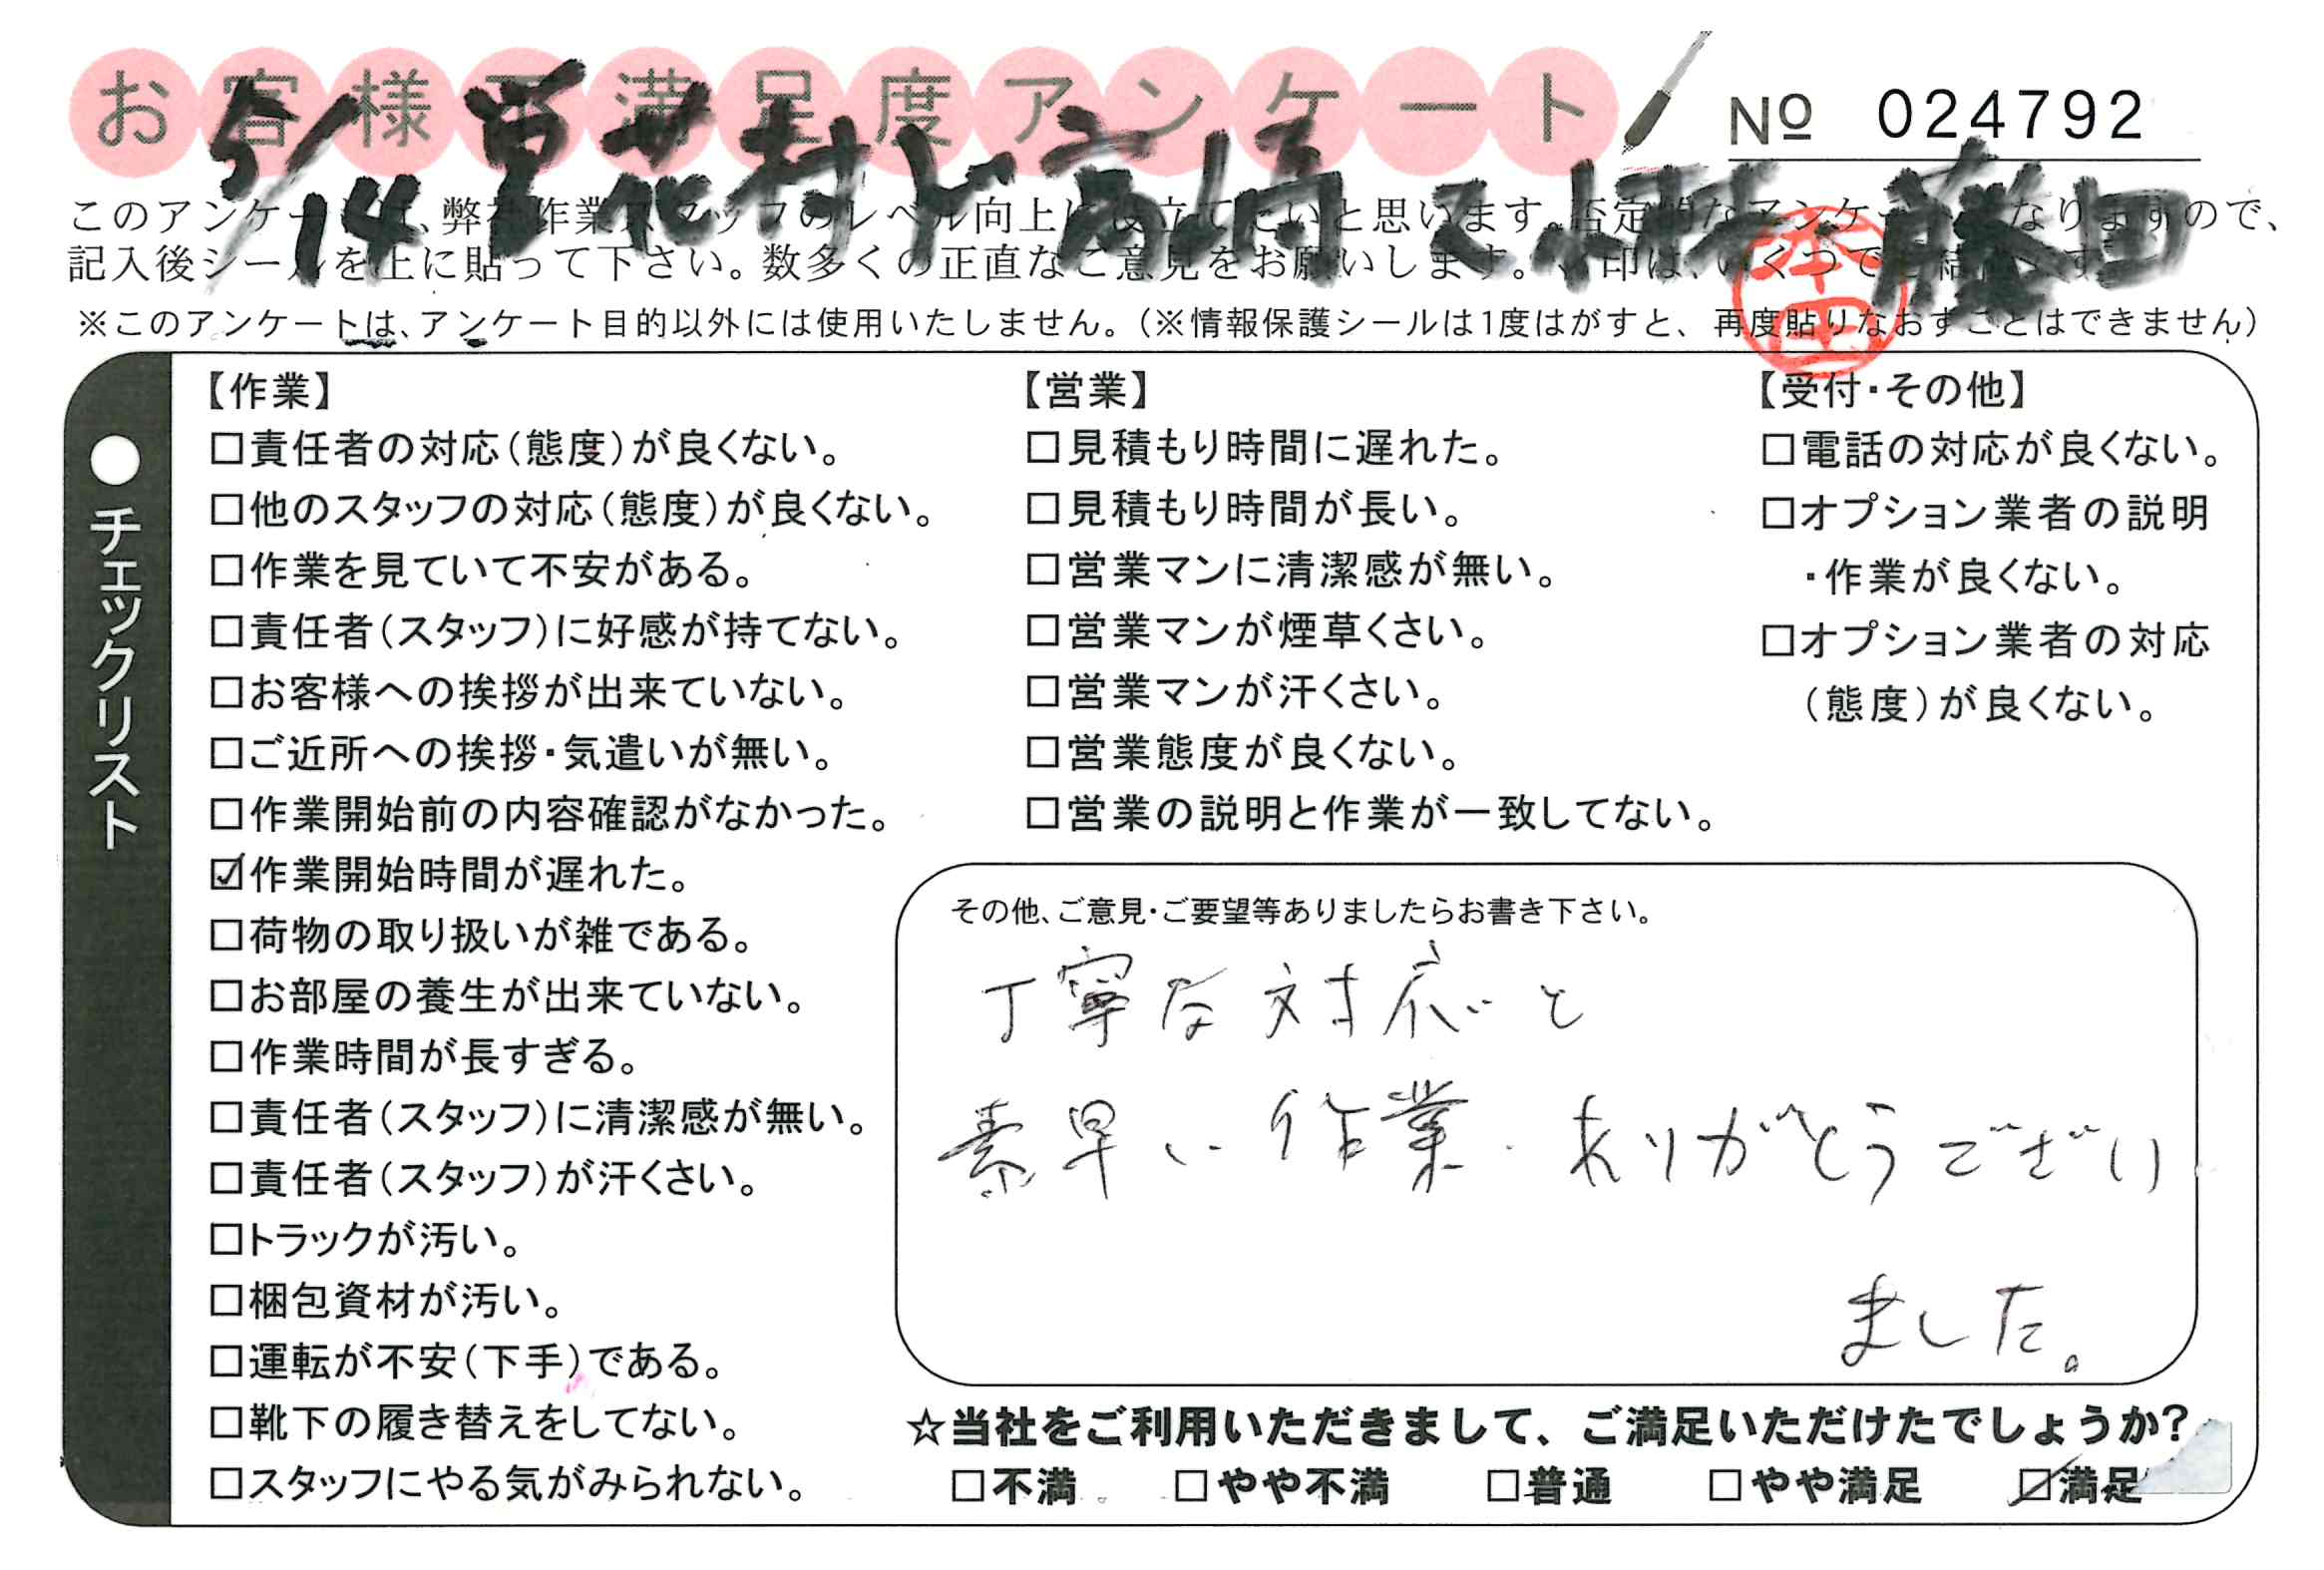 お客様不満足度アンケート
№ 024792
5/14
高橋
藤田
本田
このアンケートは、弊社作業スタッフのレベル向上に役立てたいと思います。否定的なアンケートになりますので、
記入後シールを上に貼って下さい。数多くの正直なご意見をお願いします。
※このアンケートは、アンケート目的以外には使用いたしません。（※情報保護シールは1度はがすと、再度貼りなおすことはできません）
●チェックリスト
【作業】
□責任者の対応（態度）が良くない。
□他のスタッフの対応（態度）が良くない。
□作業を見ていて不安がある。
□責任者（スタッフ）に好感が持てない。
□お客様への挨拶が出来ていない。
□ご近所への挨拶・気遣いが無い。
□作業開始前の内容確認がなかった。
☑作業開始時間が遅れた。
□荷物の取り扱いが雑である。
□お部屋の養生が出来ていない。
□作業時間が長すぎる。
□責任者（スタッフ）に清潔感が無い。
□責任者（スタッフ）が汗くさい。
□トラックが汚い。
□梱包資材が汚い。
□運転が不安（下手）である。
□靴下の履き替えをしてない。
□スタッフにやる気がみられない。
【営業】
□見積もり時間に遅れた。
□見積もり時間が長い。
□営業マンに清潔感が無い。
□営業マンが煙草くさい。
□営業マンが汗くさい。
□営業態度が良くない。
□営業の説明と作業が一致してない。
【受付・その他】
□電話の対応が良くない。
□オプション業者の説明
・作業が良くない。
□オプション業者の対応
（態度）が良くない。
その他、ご意見・ご要望等ありましたらお書き下さい。
丁寧な対応と
素早い作業、ありがとうござい
ました。
☆当社をご利用いただきまして、ご満足いただけたでしょうか?
□不満 □やや不満 □普通 □やや満足 ☑満足